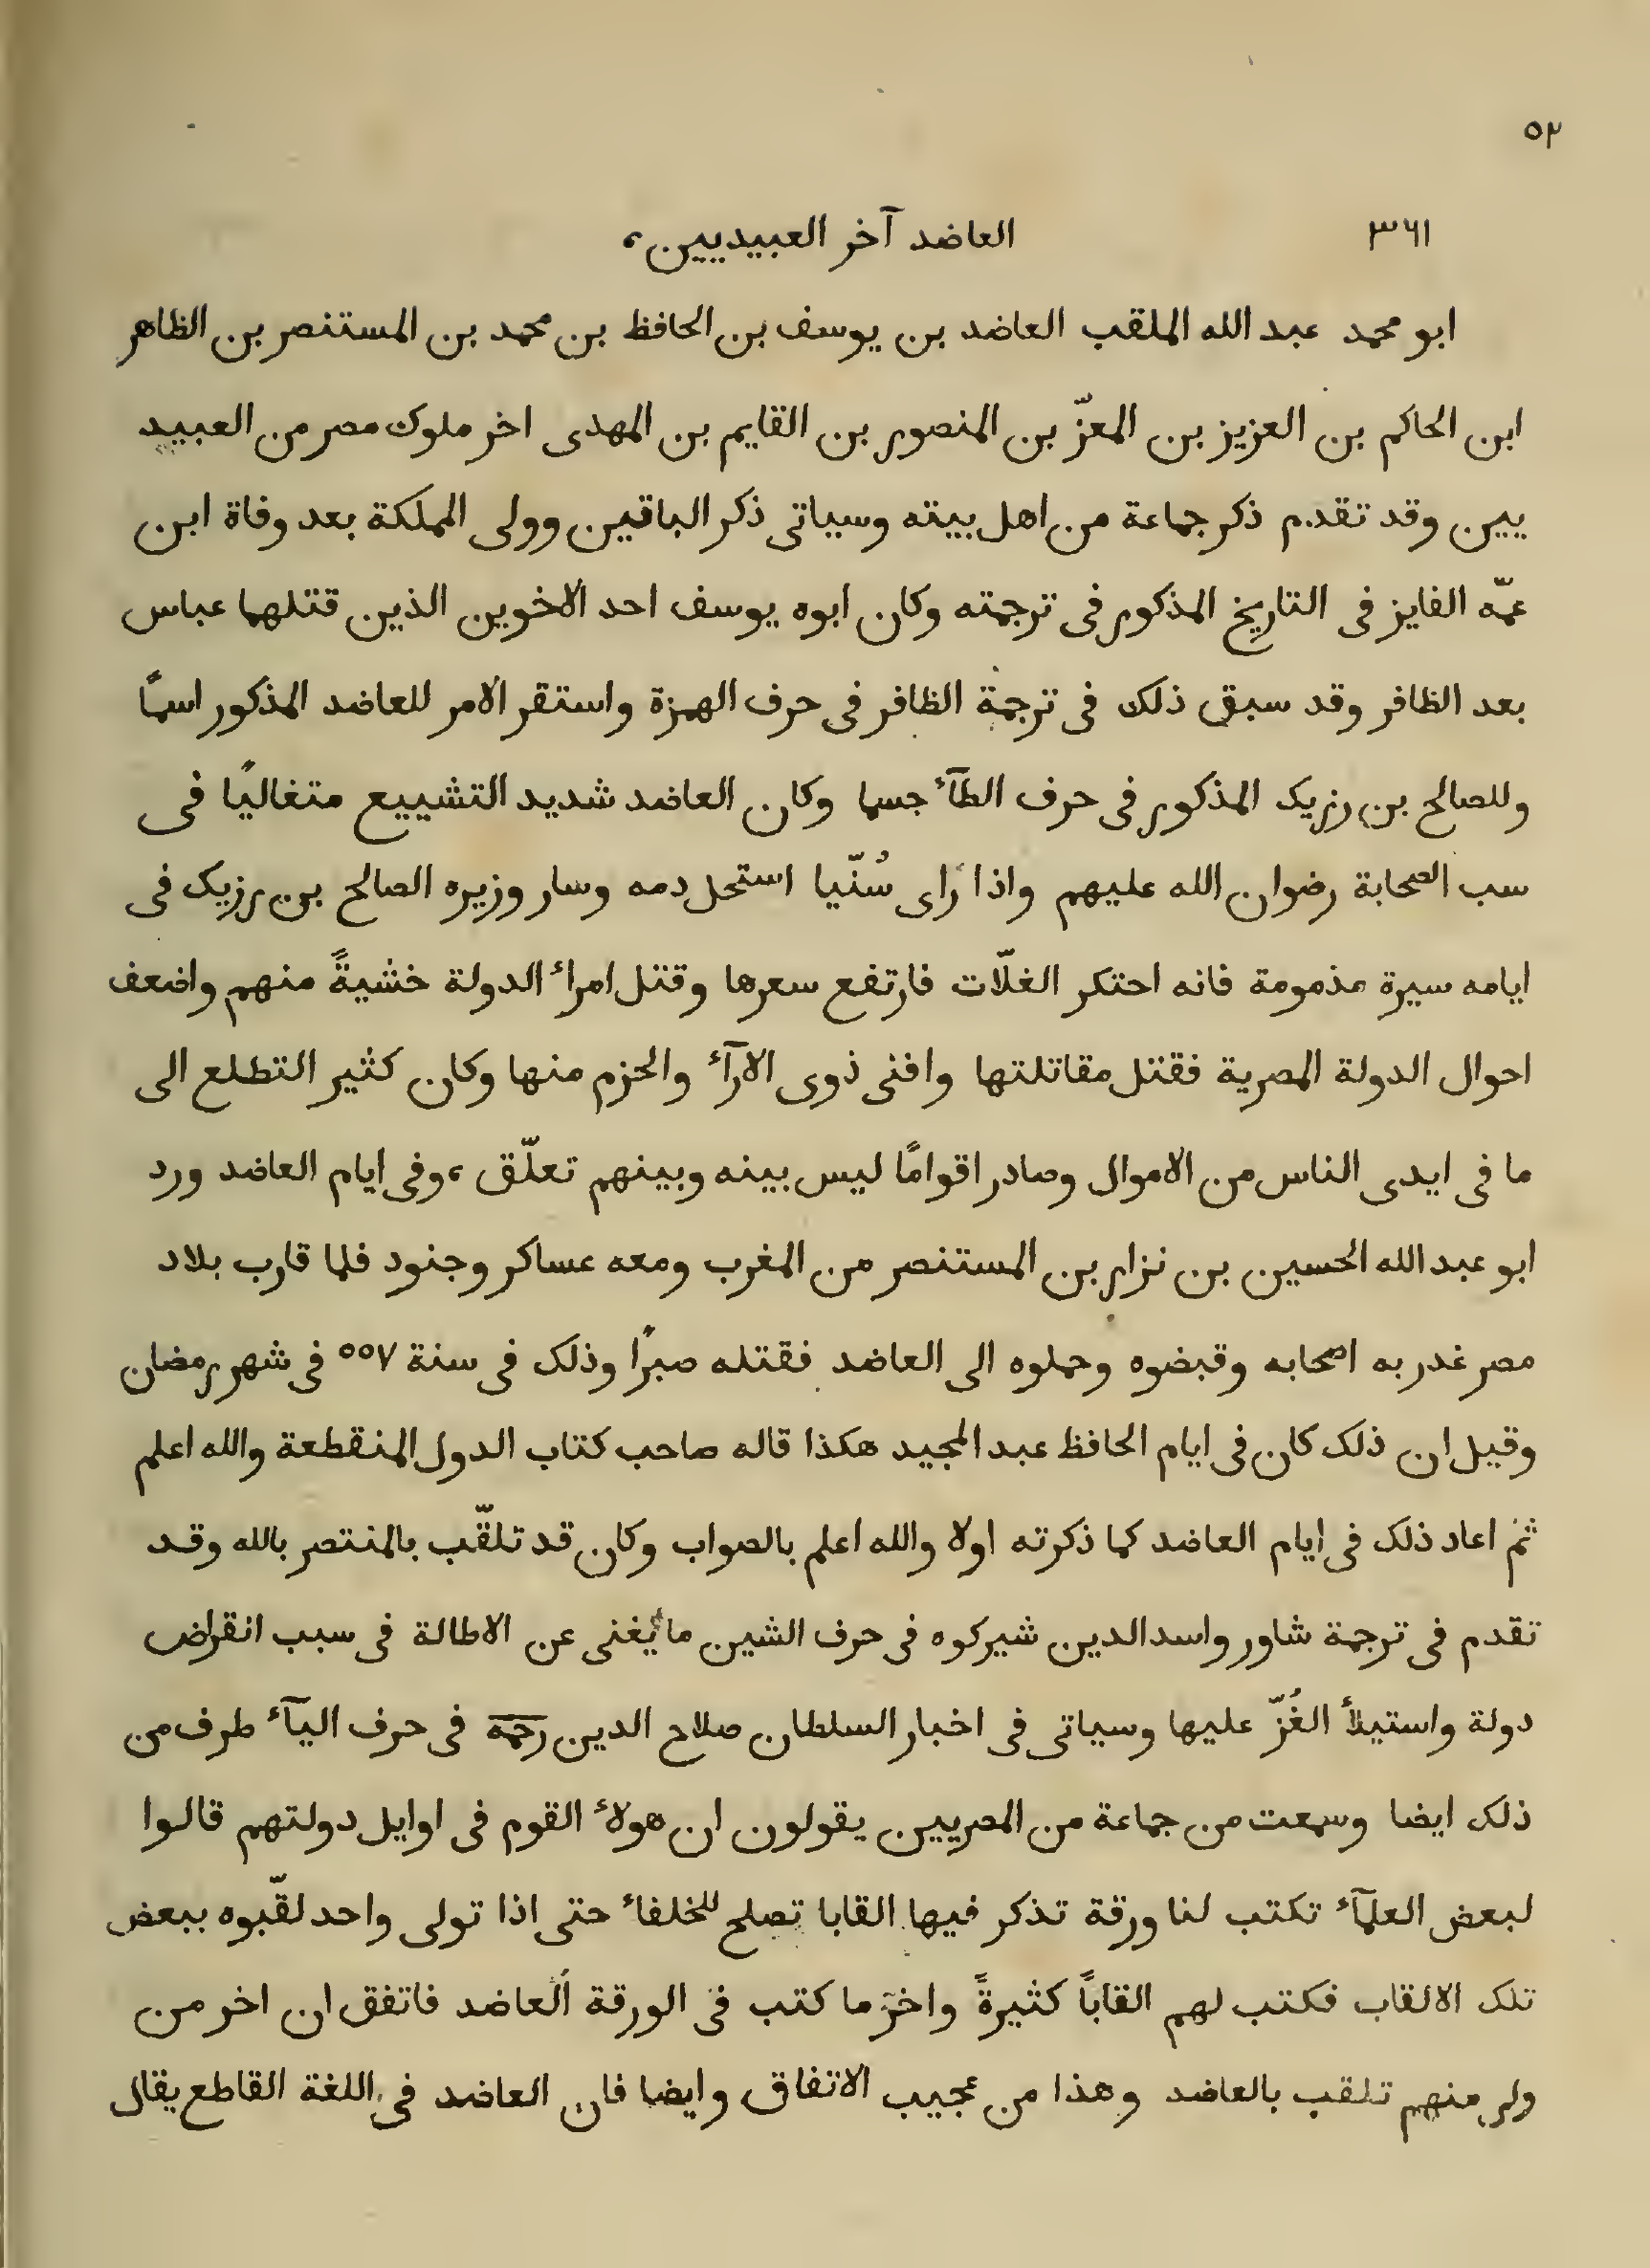 ٥٢
٣٦١ العاضد آخر العبيديين،
ابو محمد عبد الله الملقب العاضد بن يوسف بن الحافظ بن محمد بن المستنصر بن الظاهر
ابن الحاكم بن العزيز بن المعزّ بن المنصور بن القايم بن المهدى اخر ملوك مصر من العبيد
يين وقد تقدم ذكر جماعة من اهل بيته وسياتى ذكر الباقين وولى المملكة بعد وفاة ابن
عمّه الفايز فى التاريخ المذكور فى ترجمته وكان ابوه يوسف احد الاخوين الذين قتلهما عباس
بعد الظافر وقد سبق ذلك فى ترجمة الظافر فى حرف الهمزة واستقر الامر للعاضد المذكور اسمًا
وللصالح بن رزيك المذكور فى حرف الطآء جسما وكان العاضد شديد التشييع متغاليًا فى
سب الصحابة رضوان الله عليهم واذا راى سُنّيا استحل دمه وسار وزيره الصالح بن رزيك فى
ايامه سيرة مذمومة فانه احتكر الغلّات فارتفع سعرها وقتل امراء الدولة خشيةً منهم واضعف
احوال الدولة المصرية فقتل مقاتلتها وافنى ذوى الارآء والحزم منها وكان كثير التطلع الى
ما فى ايدى الناس من الاموال وصادر اقوامًا ليس بينه وبينهم تعلّق، وفى ايام العاضد ورد
ابو عبد الله الحسين بن نزار بن المستنصر من المغرب ومعه عساكر وجنود فلما قارب بلاد
مصر غدر به اصحابه وقبضوه وحملوه الى العاضد فقتله صبرًا وذلك فى سنة ٥٥٧ فى شهر رمضان
وقيل ان ذلك كان فى ايام الحافظ عبد المجيد هكذا قاله صاحب كتاب الدول المنقطعة والله اعلم
ثم اعاد ذلك فى ايام العاضد كما ذكرته اولا والله اعلم بالصواب وكان قد تلقّب بالمنتصر بالله وقد
تقدم فى ترجمة شاور واسد الدين شيركوه فى حرف الشين ما يُغنى عن الاطالة فى سبب انقراض
دولة واستيلأ الغُزّ عليها وسياتى فى اخبار السلطان صلاح الدين رحمه فى حرف اليآء طرف من
ذلك ايضا وسمعت من جماعة من المصريين يقولون ان هولاء القوم فى اوايل دولتهم قالوا
لبعض العلمآء تكتب لنا ورقة تذكر فيها القابا تصلح للخلفاء حتى اذا تولى واحد لقّبوه ببعض
تلك الالقاب فكتب لهم القابًا كثيرةً واخر ما كتب فى الورقة العاضد فاتفق ان اخر من
ولى منهم تلقب بالعاضد وهذا من عجيب الاتفاق وايضا فان العاضد فى اللغة القاطع يقال